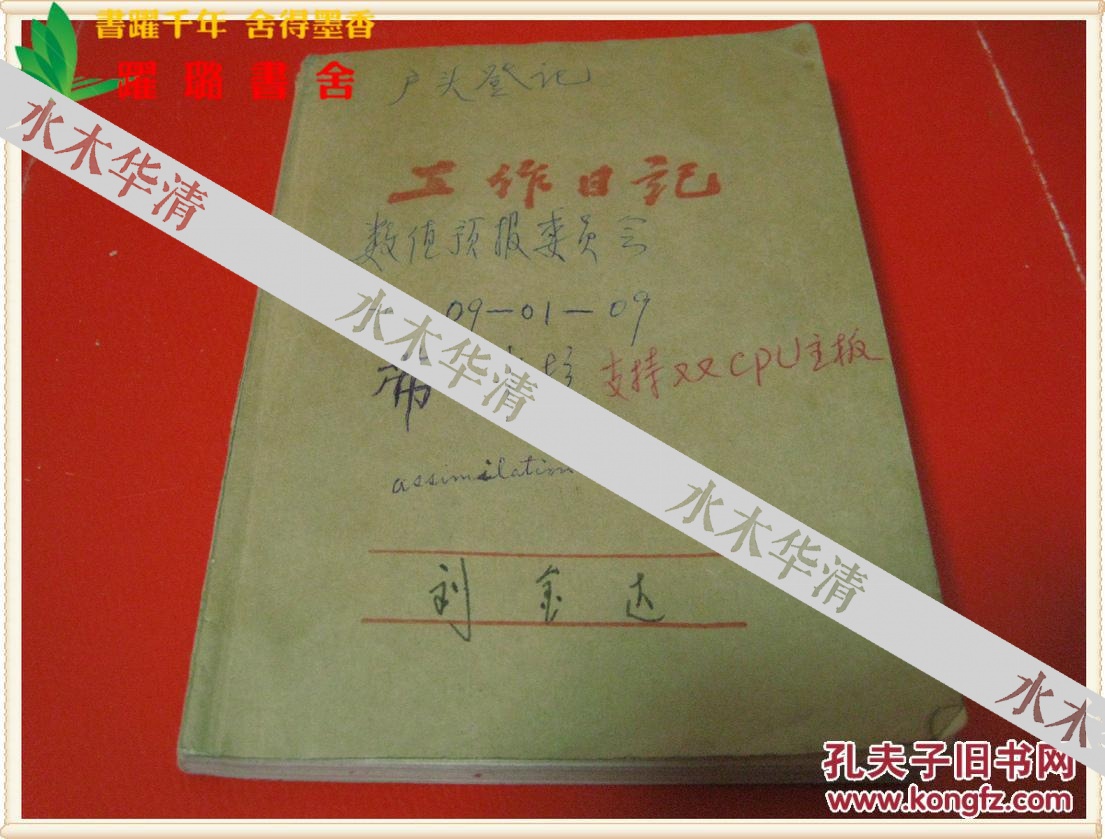 書躍千年 舍得墨香
躍璐書舍
户头登记
工作日记
数值预报委员会
09-01-09
布
支持双CPU主板
assimilation
刘金达
水木华清
水木华清
水木华清
水木
孔夫子旧书网
www.kongfz.com